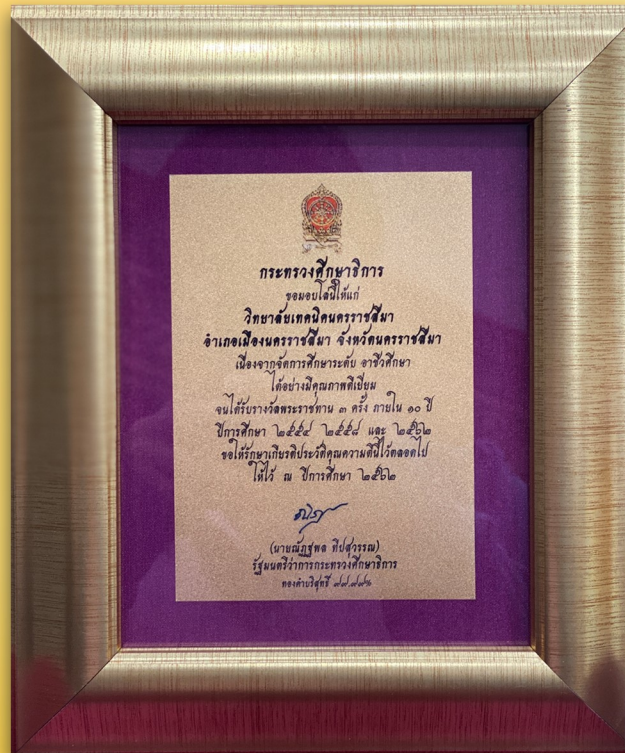 กระทรวงศึกษาธิการ
ขอมอบโล่นี้ให้แก่
วิทยาลัยเทคนิคนครราชสีมา
อำเภอเมืองนครราชสีมา จังหวัดนครราชสีมา
เนื่องจากจัดการศึกษาระดับ อาชีวศึกษา
ได้อย่างมีคุณภาพดีเยี่ยม
จนได้รับรางวัลพระราชทาน ๓ ครั้ง ภายใน ๑๐ ปี
ปีการศึกษา ๒๕๕๔ ๒๕๕๘ และ ๒๕๖๒
ขอให้รักษาเกียรติประวัติคุณความดีนี้ไว้ตลอดไป
ให้ไว้ ณ ปีการศึกษา ๒๕๖๒
(นายณัฏฐพล ทีปสุวรรณ)
รัฐมนตรีว่าการกระทรวงศึกษาธิการ
ทองคำบริสุทธิ์ ๙๙.๙๙%